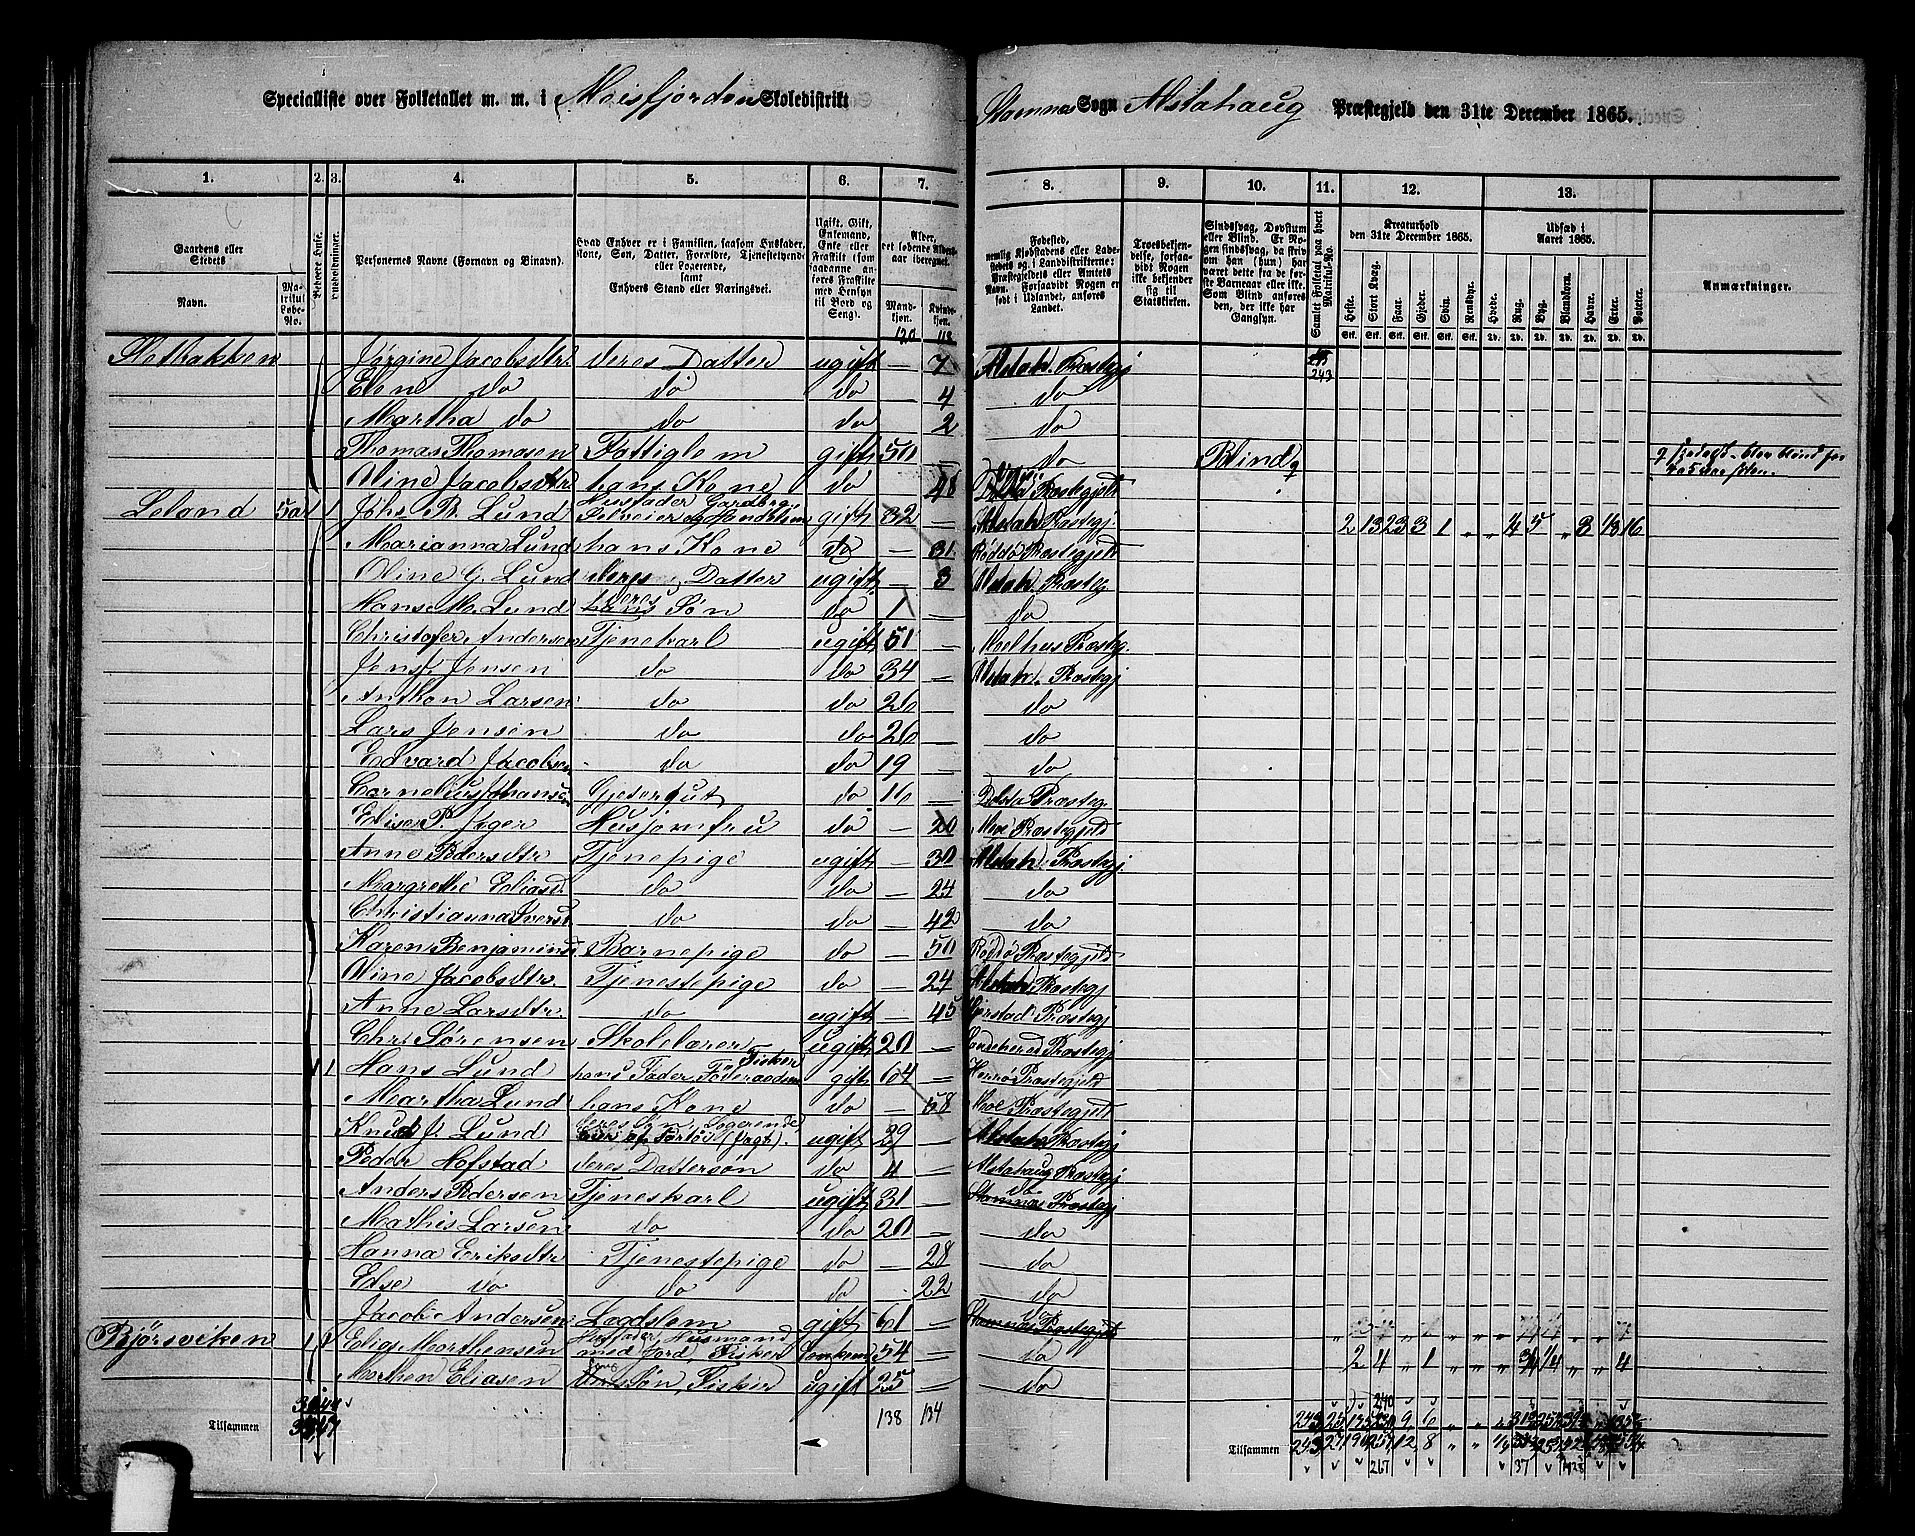 Specialliste over Folketallet m. m. i Meisfjorden Skoledistrikt
Stamnes Sogn Alstahaug Præstegjeld den 31te December 1865.
1. 2. 3. 4. 5. 6. 7. 8. 9. 10. 11. 12. 13.
Gaardens eller Stedets
Navn.
Matrikul Løbe-No.
Beboede Huse.
Huusholdninger.
Personernes Navne (Fornavn og Binavn).
Hvad Enhver er i Familien, saasom Husfader, Kone, Søn, Datter, Forældre, Tjenestetyende eller Logerende, samt Enhvers Stand eller Næringsvei.
Ugift, Gift, Enkemand, Enke eller Fraskilt (som saadanne anføres Fraskilte med Hensyn til Bord og Seng).
Alder, det løbende Alders-aar iberegnet.
Mandkjøn. Kvindekjøn.
Fødested, nemlig Kjøbstadens eller Ladestedets og i Landdistrikterne: Præstegjeldets eller Amtets Navn. Forsaavidt Nogen er født i Udlandet, anføres Landet.
Troesbekjendelse, forsaavidt Nogen ikke bekjender sig til Statskirken.
Sindssvag, Døvstum eller Blind. Er Nogen sindssvag, da skrives om han (hun) har været dette fra de første Barneaar eller ikke. Som Blind anføres den, der ikke har Gangsyn.
Samlet Folketal paa hvert Matrikul-No.
Kreaturhold den 31te December 1865.
Heste. Stort Kvæg. Faar. Gjeder. Svin. Rensdyr.
Udsæd i Aaret 1865.
Hvede. Rug. Byg. Blandkorn. Havre. Erter. Poteter.
Anmærkninger.
120 118
Jørgine Jacobsdtr. deres Datter ugift — 7 Alstah. Præstegj 243
Elen do do do — 4 do
Martha do do do — 2 do
Thomas Thomesen Fattiglem gift 50 do Blind
Oline Jacobsdtr hans Kone do — 48 Præstegjeld
Leland 5a 1 1 Johs B. Lund Husfader Gaardbr. Selveier og Handelsm gift 32 — Alstah Præstegj 2 13 23 3 1 " " 4 5 " 8 1/8 16
Marianna Lund hans Kone do — 31 Rødø Præstegjeld
Oline G. Lund deres Datter ugift — 3 Alstah. Præsteg.
Hans M. Lund deres Søn do 1 — do
Christofer Andersen Tjenekarl ugift 51 — Melhus Præsteg.
Jens J. Jensen do do 34 — Alstah. Præstegj
Anthon Larsen do do 26 — do
Lars Jensen do do 26 — do
Edvard Jacobsen do do 19 — do
Cornelius Johansen Gjetergut do 16 — Præsteg.
P. Jæger Husjomfru do — 20 Præstegjeld
Anne Pedersdtr Tjenepige ugift — 30 Alstah. Præstegj.
Margrethe Eliasd. do do — 24 do
Christianna Iversd do do — 42 do
Karen Benjamins Barnepige do — 50 Rødø Præstegjeld
Oline Jacobsdtr. Tjenestepige do — 24 Alstah Præstegj
Anne Larsdtr do ugift — 45 Præstegj
Chr. Sørensen Skolelærer ugift 20 — Præstegj
1 1 Hans Lund hans Fader, Føderaadsm Fisker gift 64 — Herrø Præstegjeld
Martha Lund hans Kone do — 58 Præstegjeld
Knud J. Lund deres Søn, Logerende Eier af Fartøi (Jægt). ugift 29 — Alstah Præstegj
Peder Hofstad deres Dattersøn do 4 — Alstahaug Præstegj
Anders Pedersen Tjenestkarl ugift 31 — do Stamnæs Præstegj
Mathis Larsen do do 20 — do
Hanna Eriksdtr Tjenestepige do — 28 do
Else do do do — 22 do
Jacob Andersen Lægdslem gift 61 — do
Bjørsviken 1 1 Elias Marthensen Husfader, Husmand med Jord, Fisker Enkem 54 — do 2 4 " 1 " " " 3/4 1/4 " " " 4
Marthen Eliasen hans Søn, Fisker ugift 25 — do
Tilsammen 138 134
Tilsammen